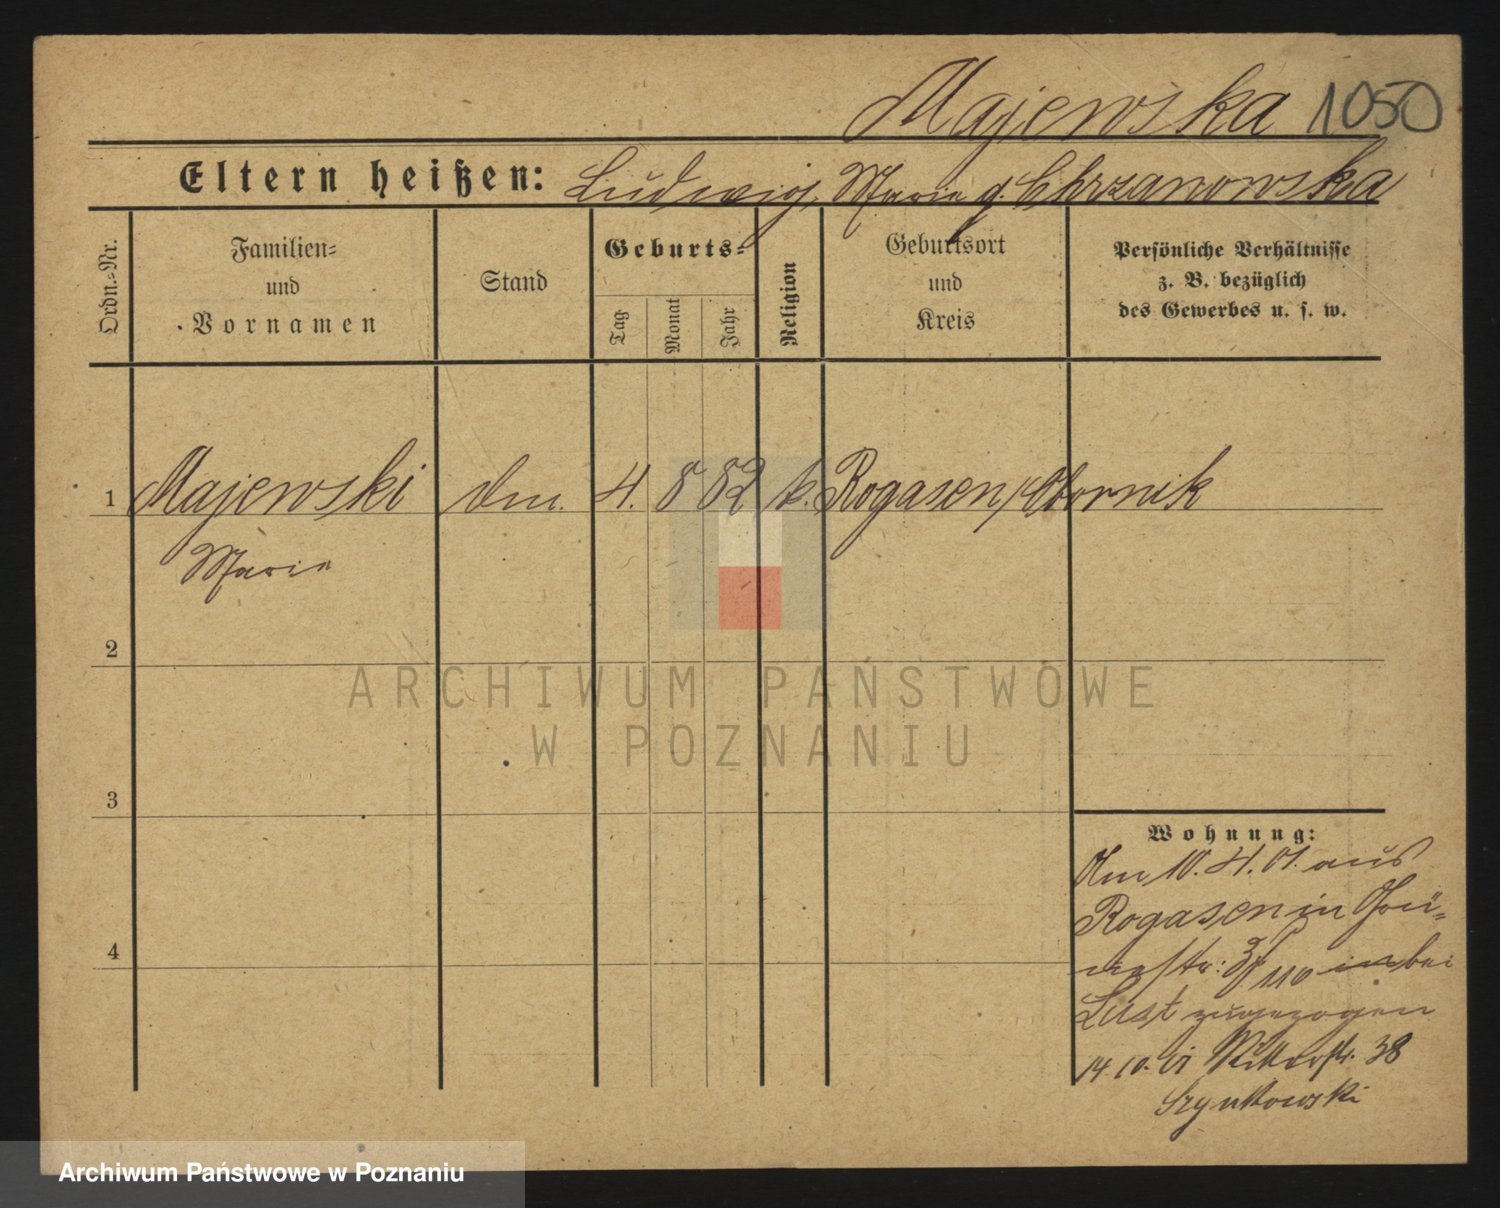 Majewska 1050
Eltern heißen: Ludwig, Marie g. Chrzanowska
Ordn.-Nr.
Familien-
und
Vornamen
Stand
Geburts-
Tag
Monat
Jahr
Religion
Geburtsort
und
Kreis
Persönliche Verhältnisse
z. B. bezüglich
des Gewerbes u. s. w.
1 Majewski 4. 8 82 k. Rogasen/Obornik
Marie
2
3
4
Wohnung:
Am 10.4.01. aus
Rogasen in
bei
Lust zugezogen
14 10. 01 Ritterstr. 38
Szynkowski
ARCHIWUM PAŃSTWOWE
W POZNANIU
Archiwum Państwowe w Poznaniu